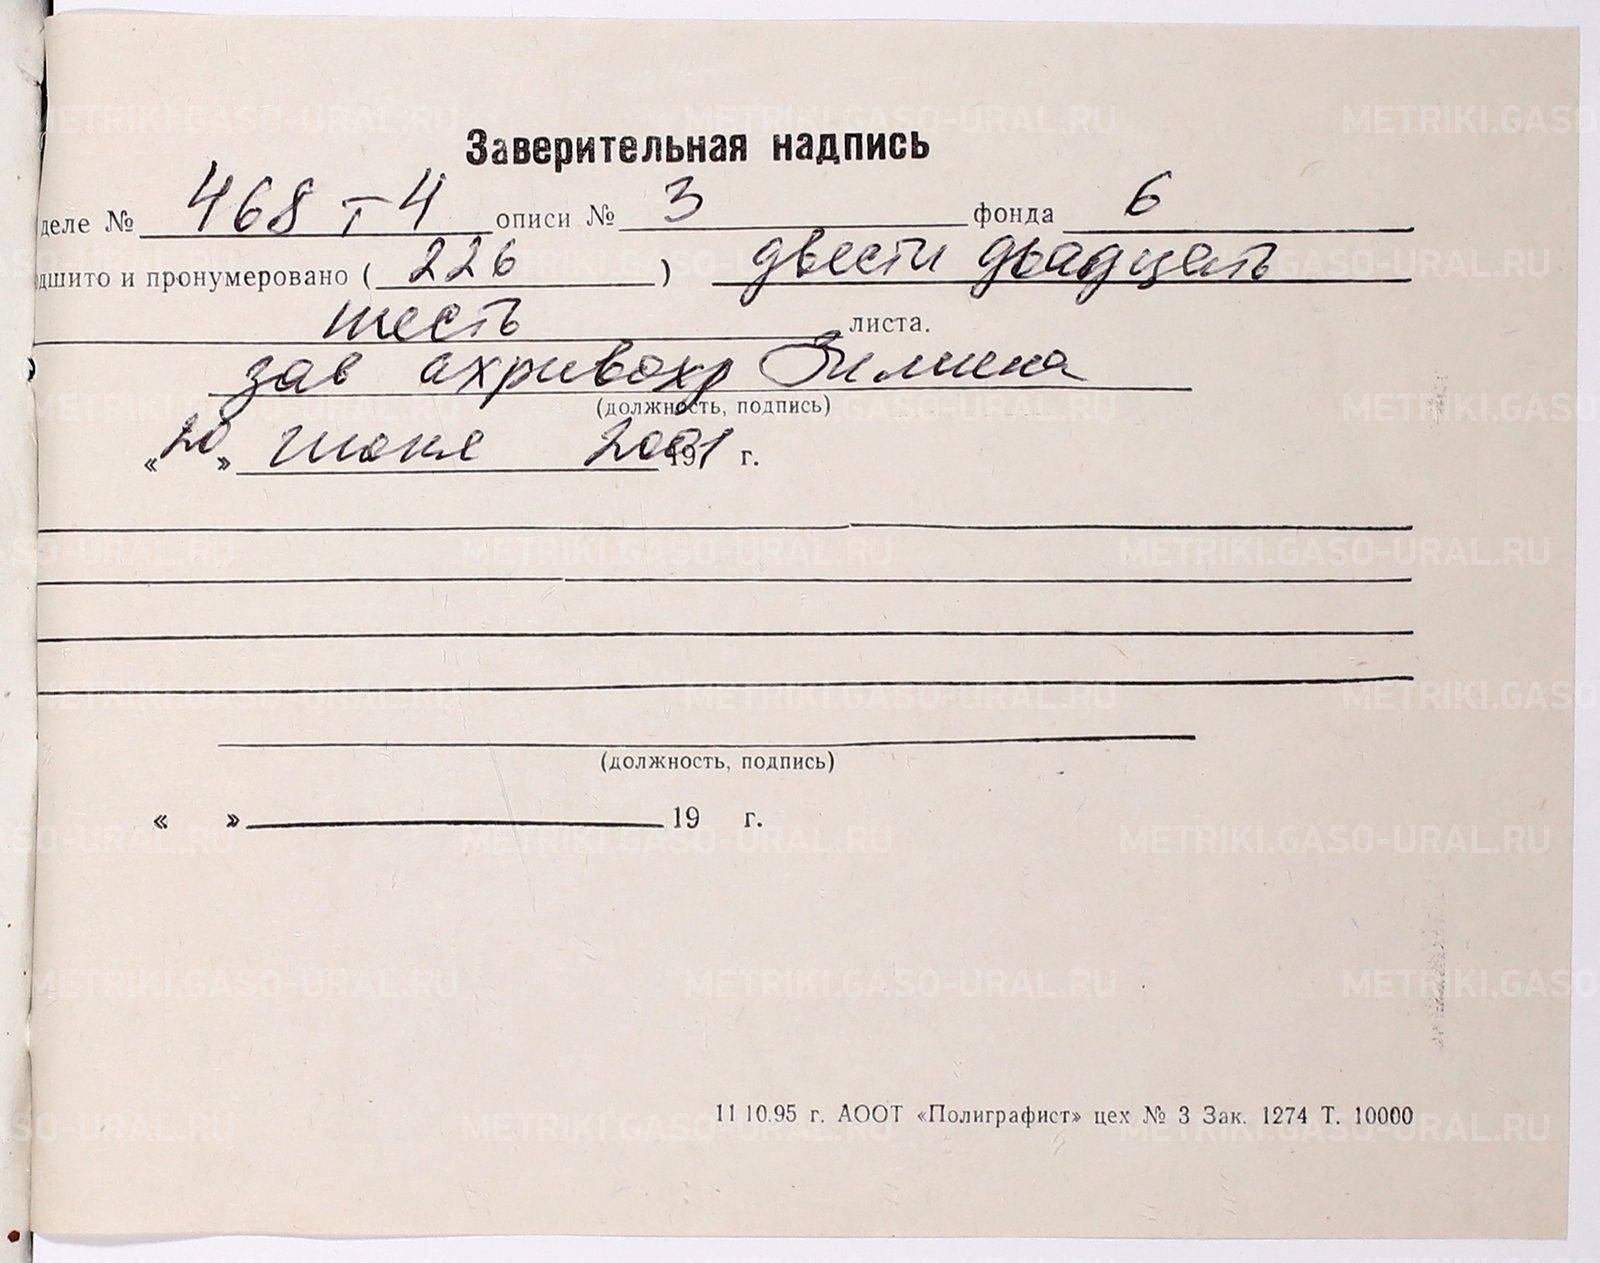 Заверительная надпись
деле № 468 т 4 описи № 3 фонда 6
дшито и пронумеровано ( 226 ) двести двадцать
шесть листа.
зав Зимина
(должность, подпись)
« 20 » июня 2001 19 г.
(должность, подпись)
« » 19 г.
11 10.95 г. АООТ «Полиграфист» цех № 3 Зак. 1274 Т. 10000
METRIKI.GASO-URAL.RU